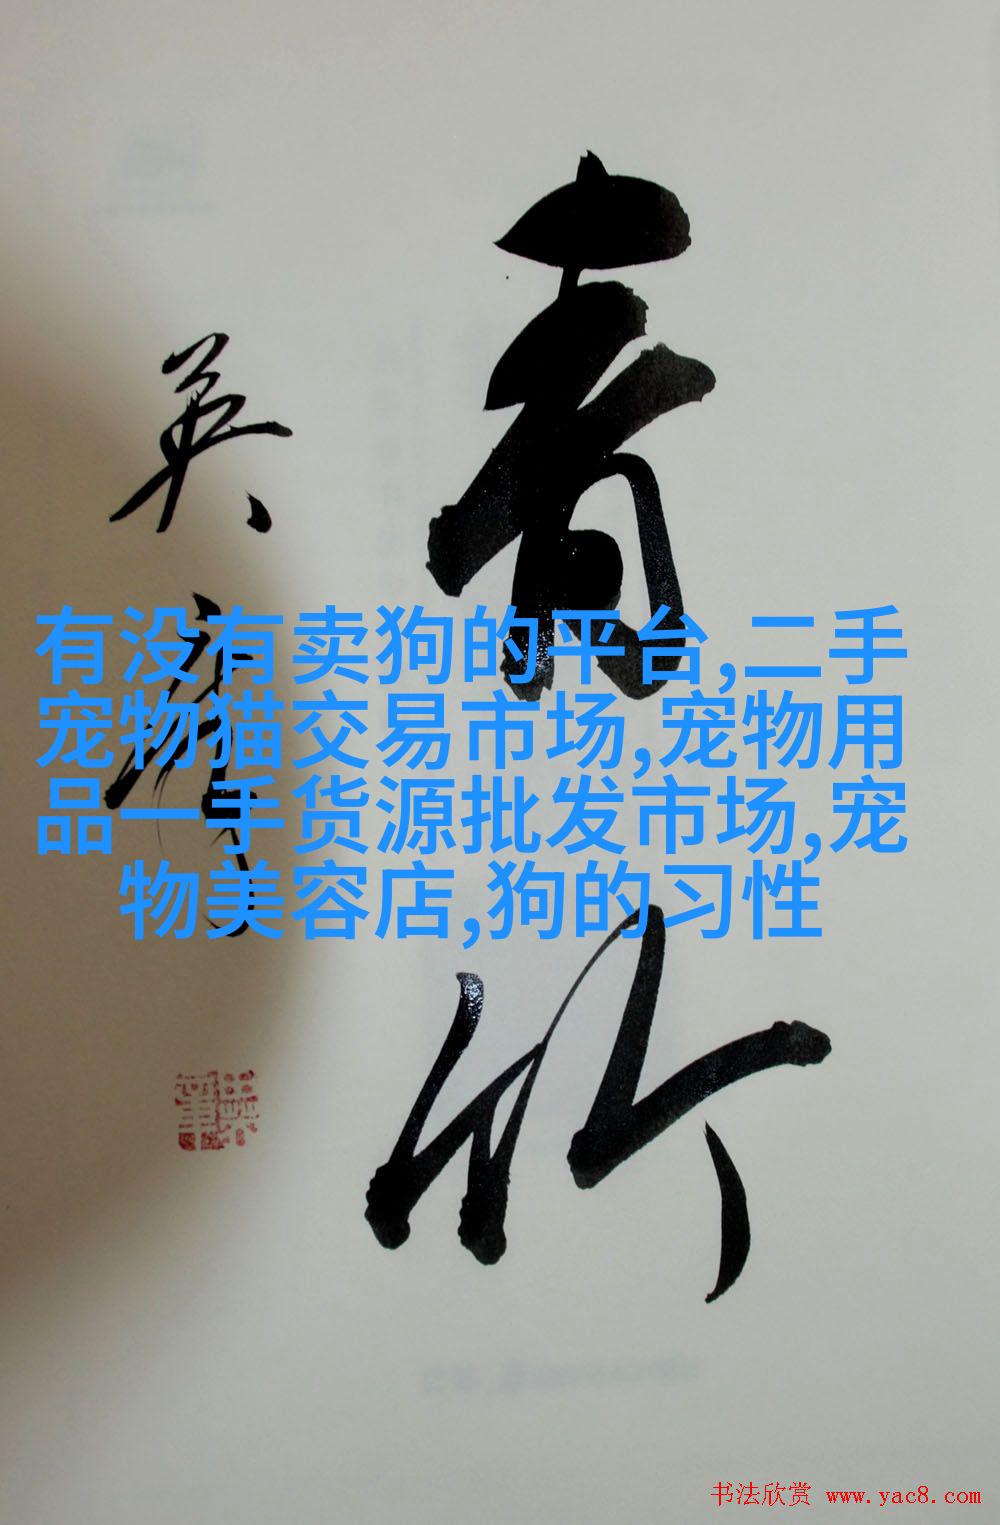 青竹
英彦
有没有卖狗的平台,二手
宠物猫交易市场,宠物用
品一手货源批发市场,宠
物美容店,狗的习性
书法欣赏 www.yac8.com